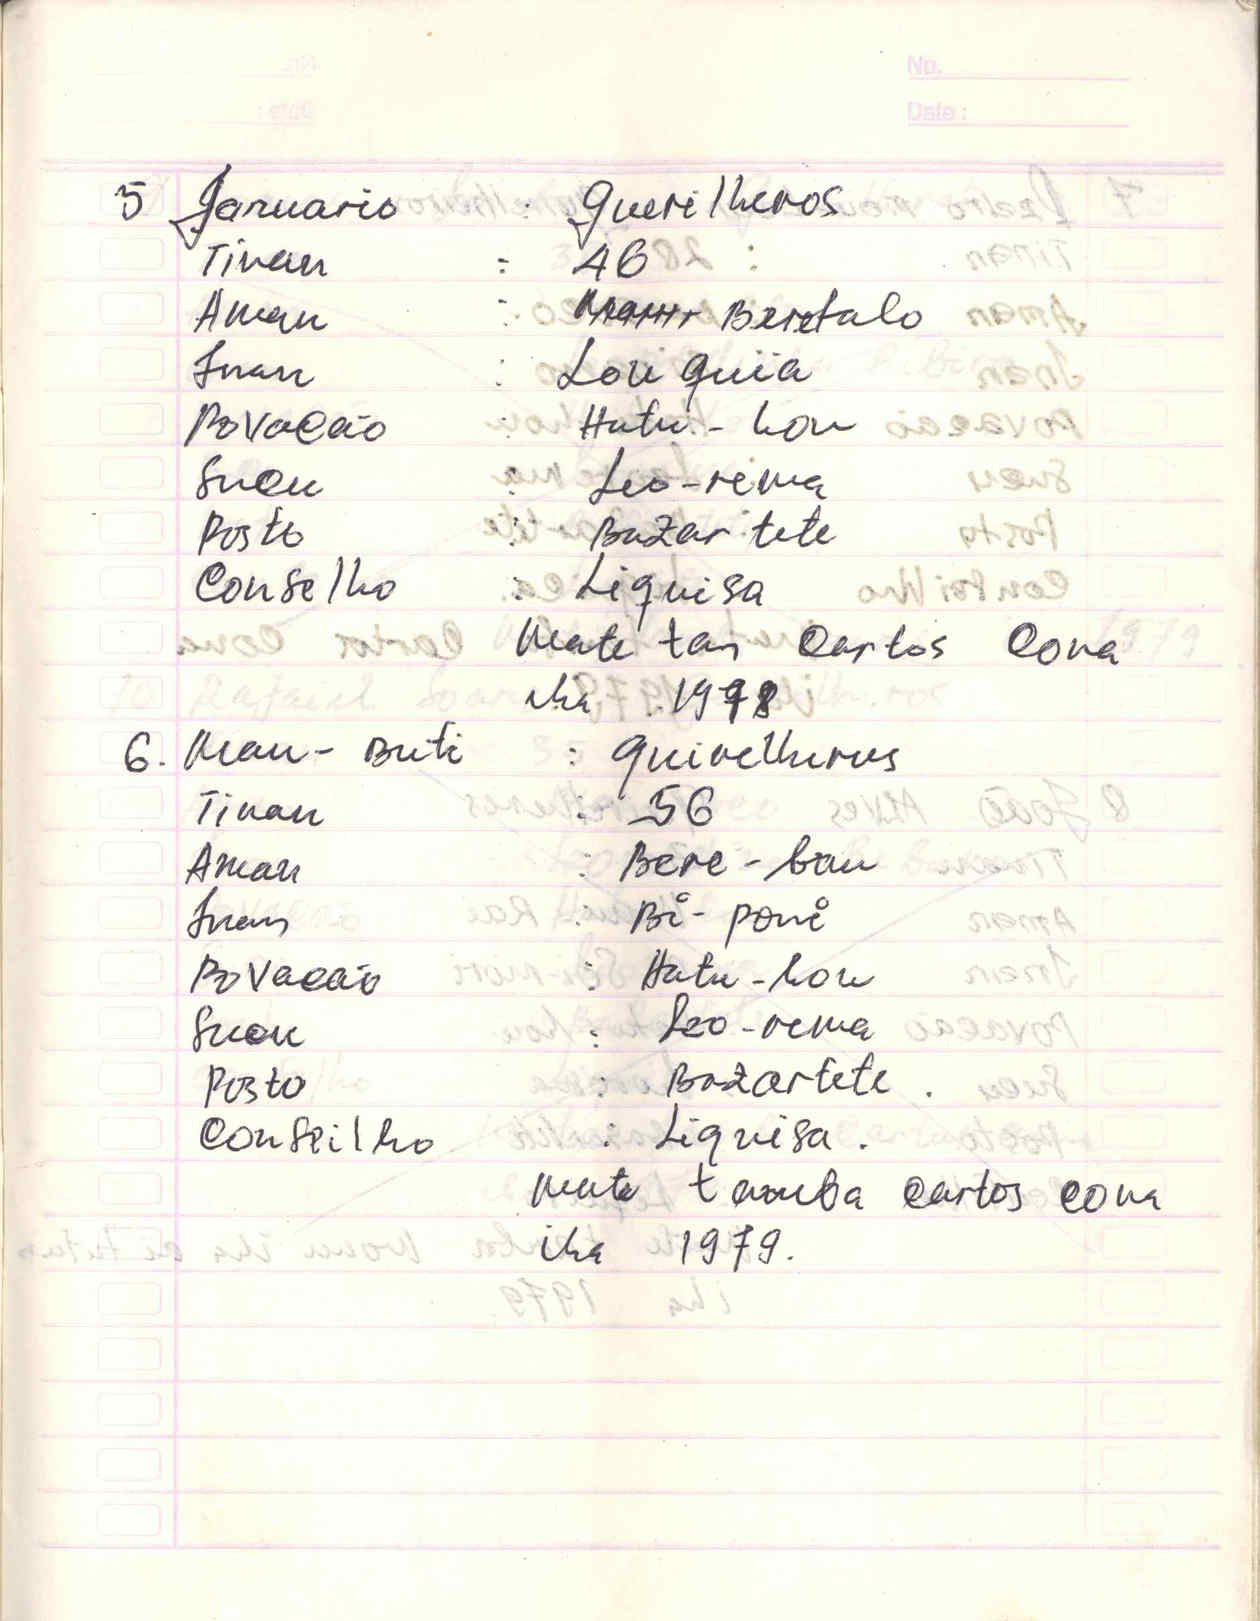 No.
Date :
5 Januario : Guerilheros
Tinan : 46
Aman : Beretalo
Inan : Louquia
Povacão : Hatu - hou
Sucu : Leo-rema
Posto : Bazar tete
Conselho : Liquisa
Mate tan Cartos Cona
iha 1978
6. Mau - Buti : Quirelherus
Tinan : 56
Aman : Bere - bau
Inan : Bi - poni
Povacão : Hatu - hou
Sucu : Leo-rema
Posto : Bazartete .
Conseilho : Liquisa .
Mate tamba Cartos Cona
iha 1979.